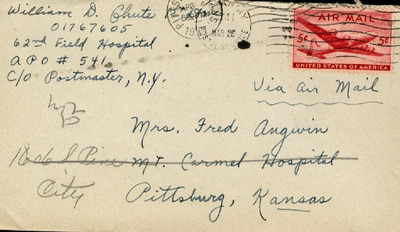 William D. Chute
01767605
62nd Field Hospital
APO # 541
C/O Postmaster, N.Y.
MAR 26
AIR MAIL
5¢ 5¢
UNITED STATES OF AMERICA
Via Air Mail
Mrs. Fred Angwin
1606 S Pine Mt. Carmel Hospital
City Pittsburg, Kansas